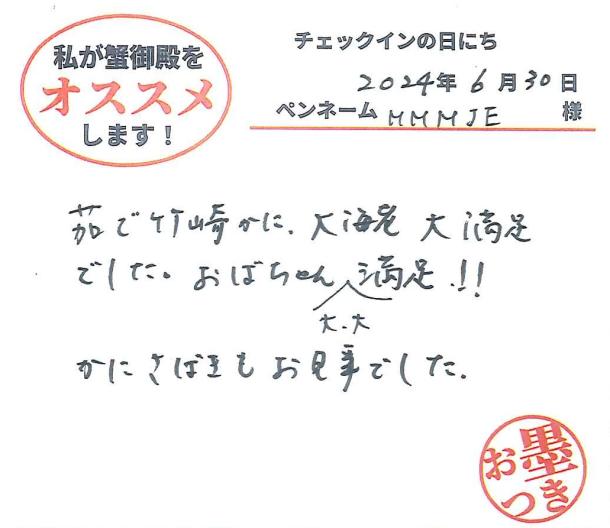 私が蟹御殿を
オススメ
します！
チェックインの日にち
2024年6月30日
ペンネーム MMMJE 様
茹で竹崎かに、大海老 大満足
でした。おばちゃん満足.!!
大.大
かにさばきもお見事でした.
お墨
つき